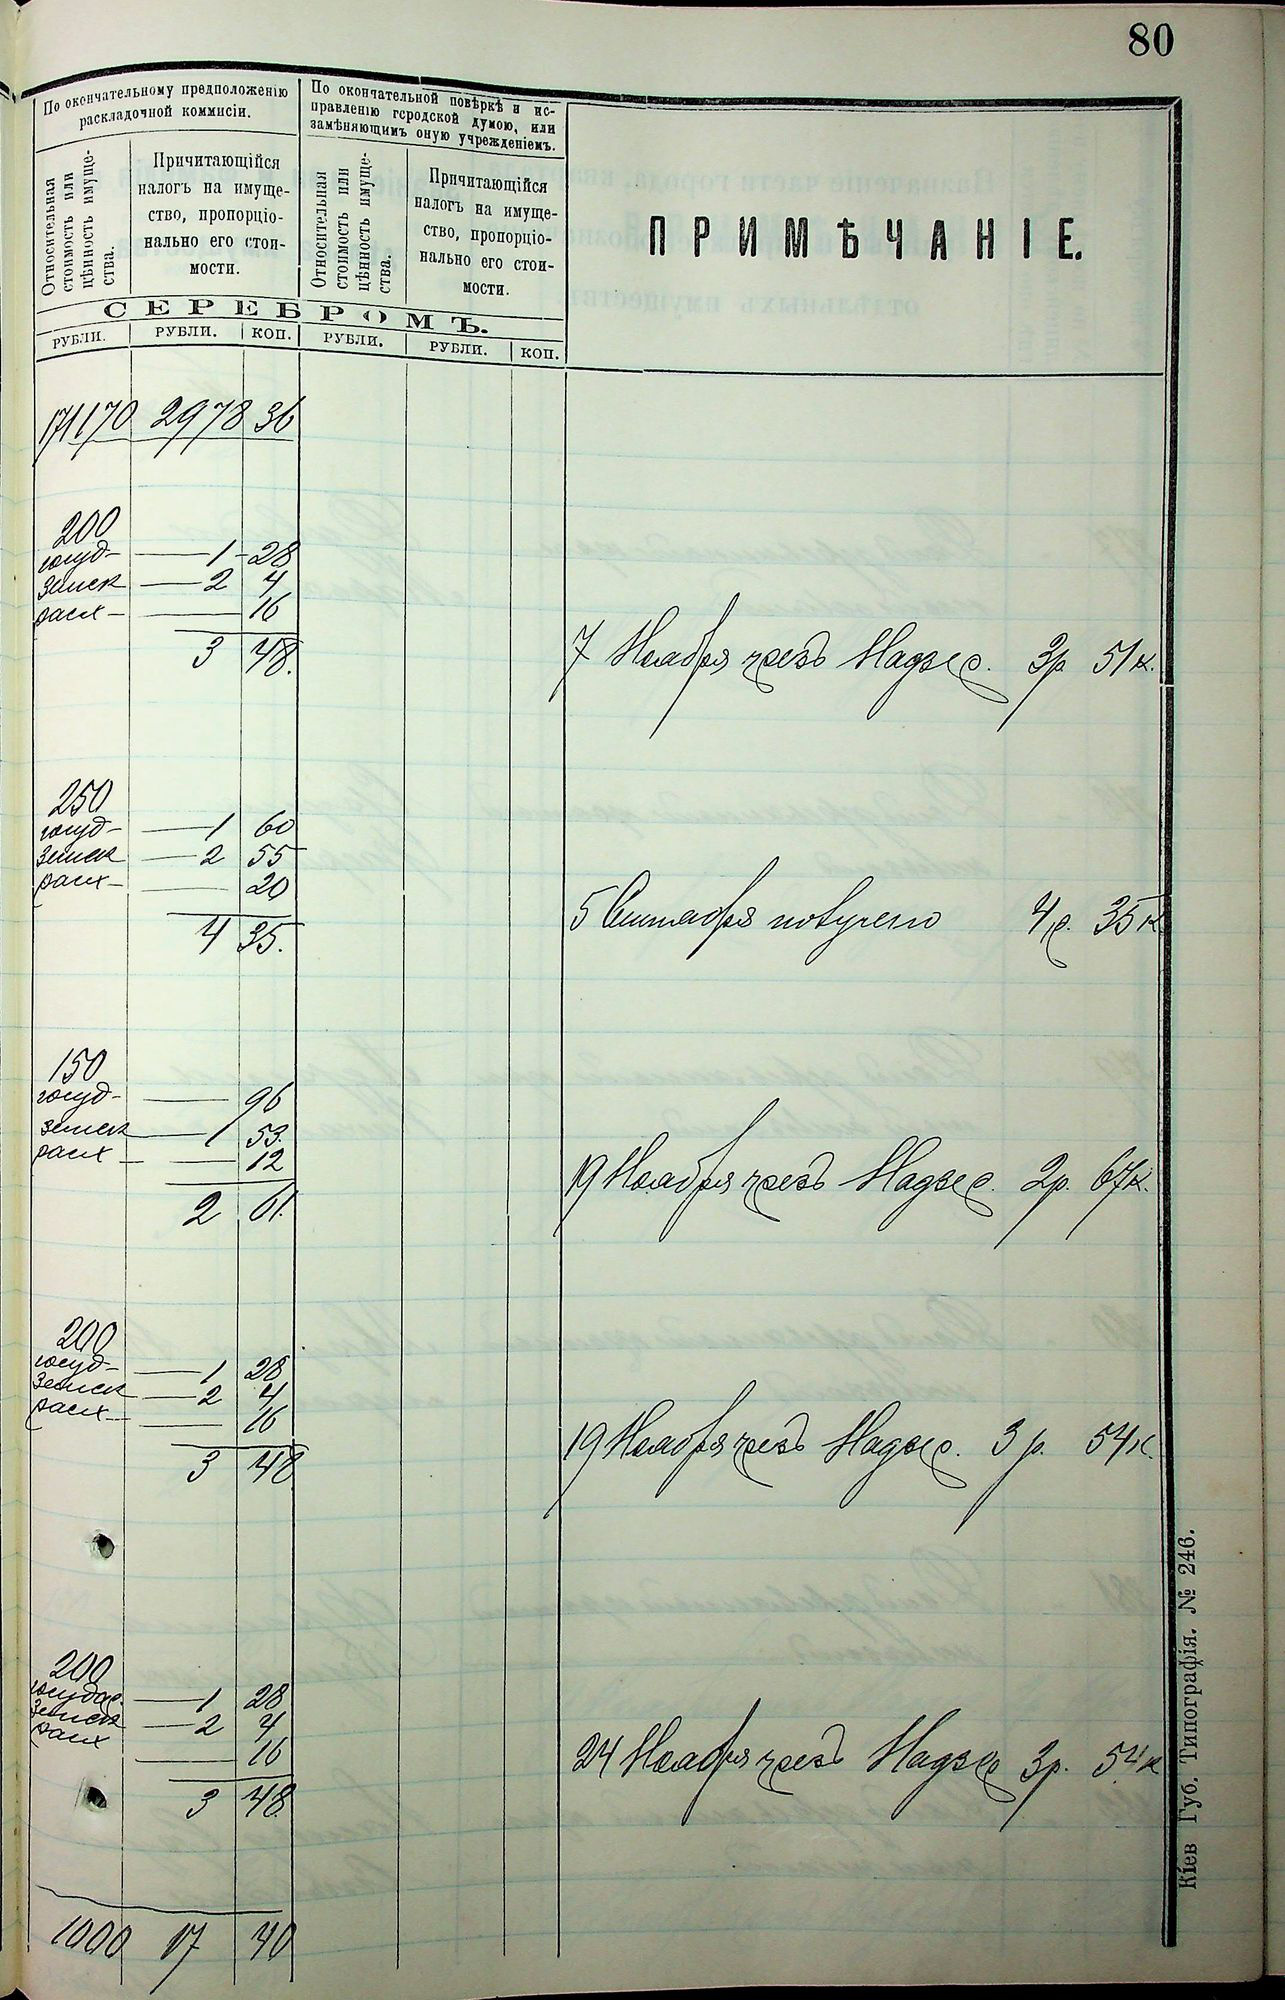 80
По окончательному предположенію
раскладочной коммисіи.
По окончательной повѣркѣ и ис-
правленію городской думою, или
замѣняющимъ оную учрежденіемъ.
Относительная
стоимость или
цѣнность имуще-
ства.
Причитающійся
налогъ на имуще-
ство, пропорціо-
нально его стои-
мости.
Относительная
стоимость или
цѣнность имуще-
ства.
Причитающійся
налогъ на имуще-
ство, пропорціо-
нально его стои-
мости.
ПРИМѢЧАНІЕ.
СЕРЕБРОМЪ.
РУБЛИ. РУБЛИ. КОП. РУБЛИ. РУБЛИ. КОП.
171170 2978 36
200
госуд — 1 - 28
земск — 2 4
расх — 16
3 48.
7 Ноября чрезъ Надзер. 3р 51 к.
250
госуд — 1 60
земск — 2 55
расх — 20
4 35.
5 Сентября получено 4р. 35 к
150
госуд — 96
земск — 1 53.
расх — 12
2 61.
19 Ноября чрезъ Надзер. 2р. 67к.
200
госуд — 1 28
земск — 2 4
расх — 16
3 48
19 Ноября чрезъ Надзер. 3 р. 54 к.
200
государ. — 1 28
земск — 2 4
расх — 16
3 48.
24 Ноября чрезъ Надзер 3р. 54 к
1000 17 40
Кіев Губ. Типографія. № 246.